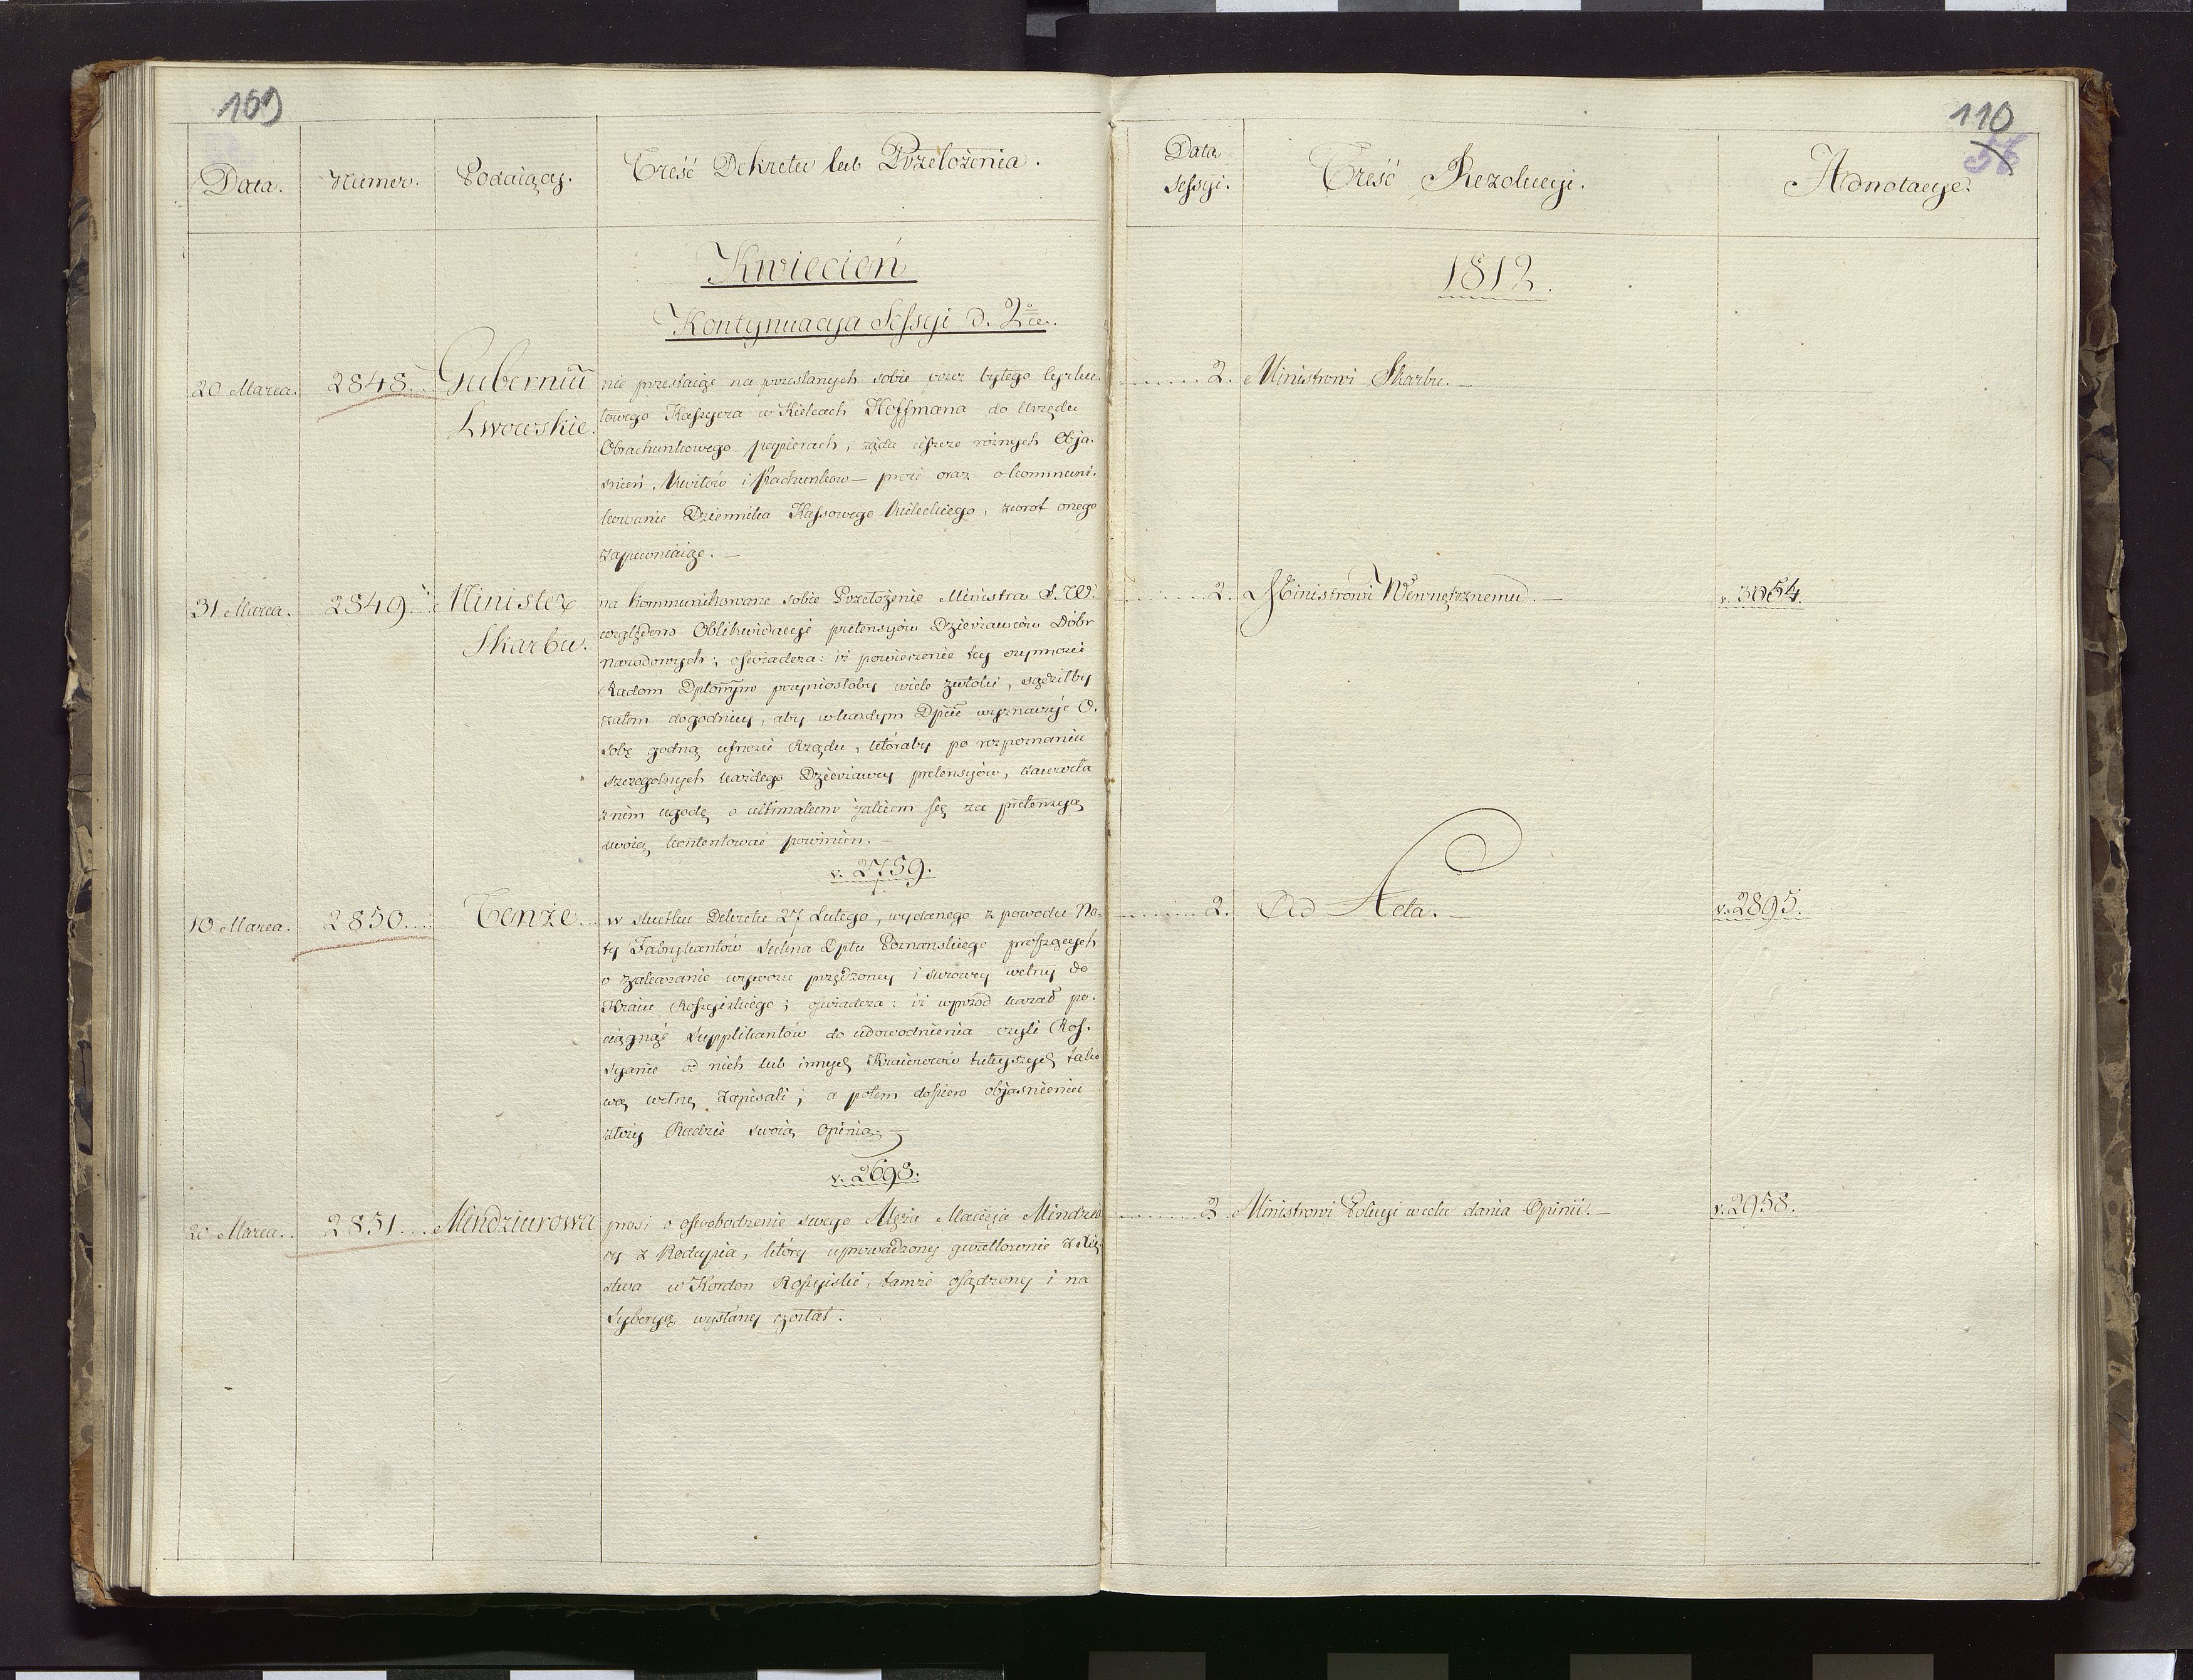 109
Data.
Numer.
Podaiący.
Treść Dekretu lub Przełożenia.
Kwiecień
Kontynuacya Sessyi d. 2
20 Marca.
2848
Guberniū
Lwowskie.
nie przestaiąc na przesłanych sobie przez byłego Cyrku-
łowego Kassyera w Kielcach Hoffmana do Urzędu
Obrachunkowego papierach, żąda ieszcze różnych Obja-
śnień, Kwitów i Rachunków – prosi oraz o kommuni-
kowanie Dziennika Kassowego Kieleckiego, zwrot onego
zapewniaiąc. –
31 Marca.
2849.
Minister
Skarbu.
na kommunikowane sobie Przełożenie Ministra S. W.
względem Oblikwidacyi pretensyów Dzierzawców Dóbr
Narodowych; oświadcza: iż powierzenie tey czynności
Radom Dpttowym przyniosłoby wiele zwłoki, sądziłby
zatem dogodniey, aby w każdym Dpcie wyznaczyć O-
sobę godną ufności Rządu, któraby po rozpoznaniu
szczególnych każdego Dzierzawcy pretensyów, zawarła
z nim ugodę, o ultimatum jakiem się za pretensyą
swoią kontentować powinien. –
v. 2759.
10 Marca.
2850
Tenże
w skutku Dekretu 27 Lutego, wydanego z powodu No-
ty Fabrykantów Sukna Dptu Poznanskiego proszących
o zakazanie wywozu przędzoney i surowey wełny do
Kraiu Rossyiskiego; oświadcza: iż wprzód kazał po-
ciągnąć Supplikantów do udowodnienia czyli Ros-
syanie od nich lub innych Kraiowców tuteyszych tako-
wą wełnę zapisali; a potem dopiero objaśnieniu
złoży Radzie swoią Opinią. –
v. 2698.
20 Marca.
2851
Mindziurowa
prosi o oswobodzenie swego Męża Macieja Mindziu-
ry z Rodypia, który uprowadzony gwałtownie z Xię-
stwa w Kordon Rossyiski, tamże osądzony i na
Syberyą wysłany został.
110
56
Data
Sessyi.
Treść Rezolucyi.
Adnotacye.
1812.
2. Ministrowi Skarbu. –
2. Ministrowi Wewnętrznemu. –
v. 3054.
2. Ad Acta. –
v. 2895.
2 Ministrowi Policyi w celu dania Opinii. –
v. 2958.